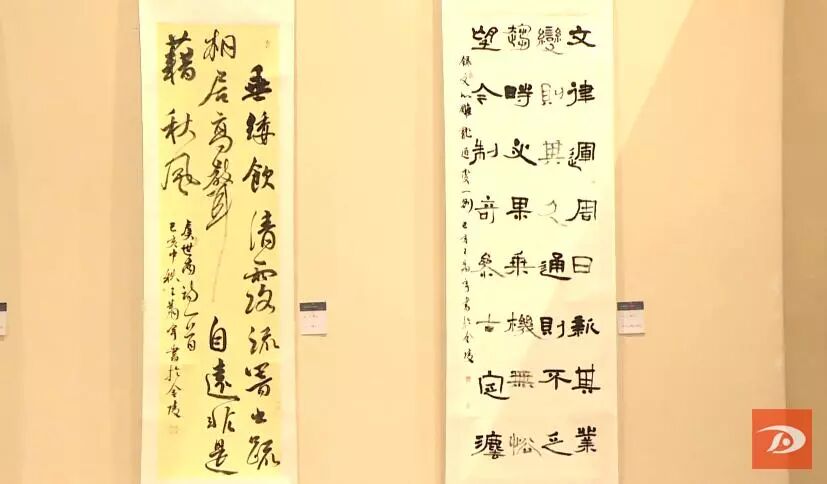 垂緌飲清露流響出疏
桐居高聲自遠非是
藉秋風
虞世南詩一首
己亥中秋書於金陵
文律運周日新其業
變則其久通則不乏
趨時必果乘機無怯
望今制奇參古定灋
錄文心雕龍通變一則己亥書於金陵